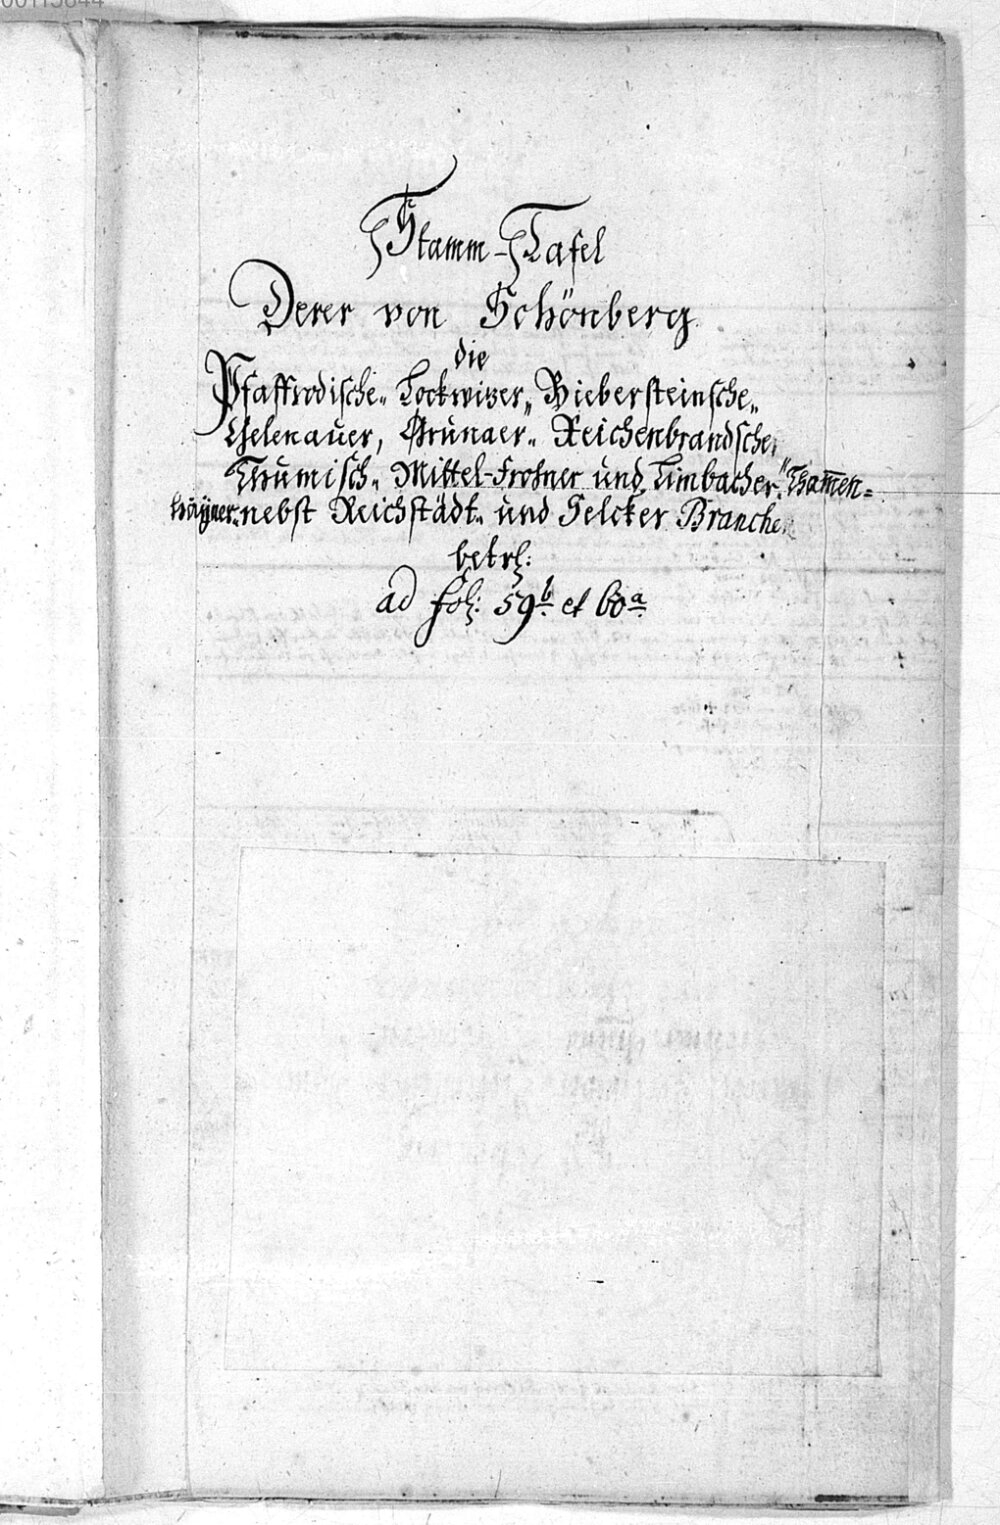 00113844
Stamm-Tafel
Derer von Schönberg
die
Pfaffrodische„ Lockwizer„ Biebersteinsche„
Gelenauer, Grünaer„ Reichenbrandsche„
Thumisch„ Mittel-Frohner und Limbacher„ Tham̅en=
hayner„ nebst Reichstädt„ und Selcker Branche
betrf:
ad fol: 59b et 60a